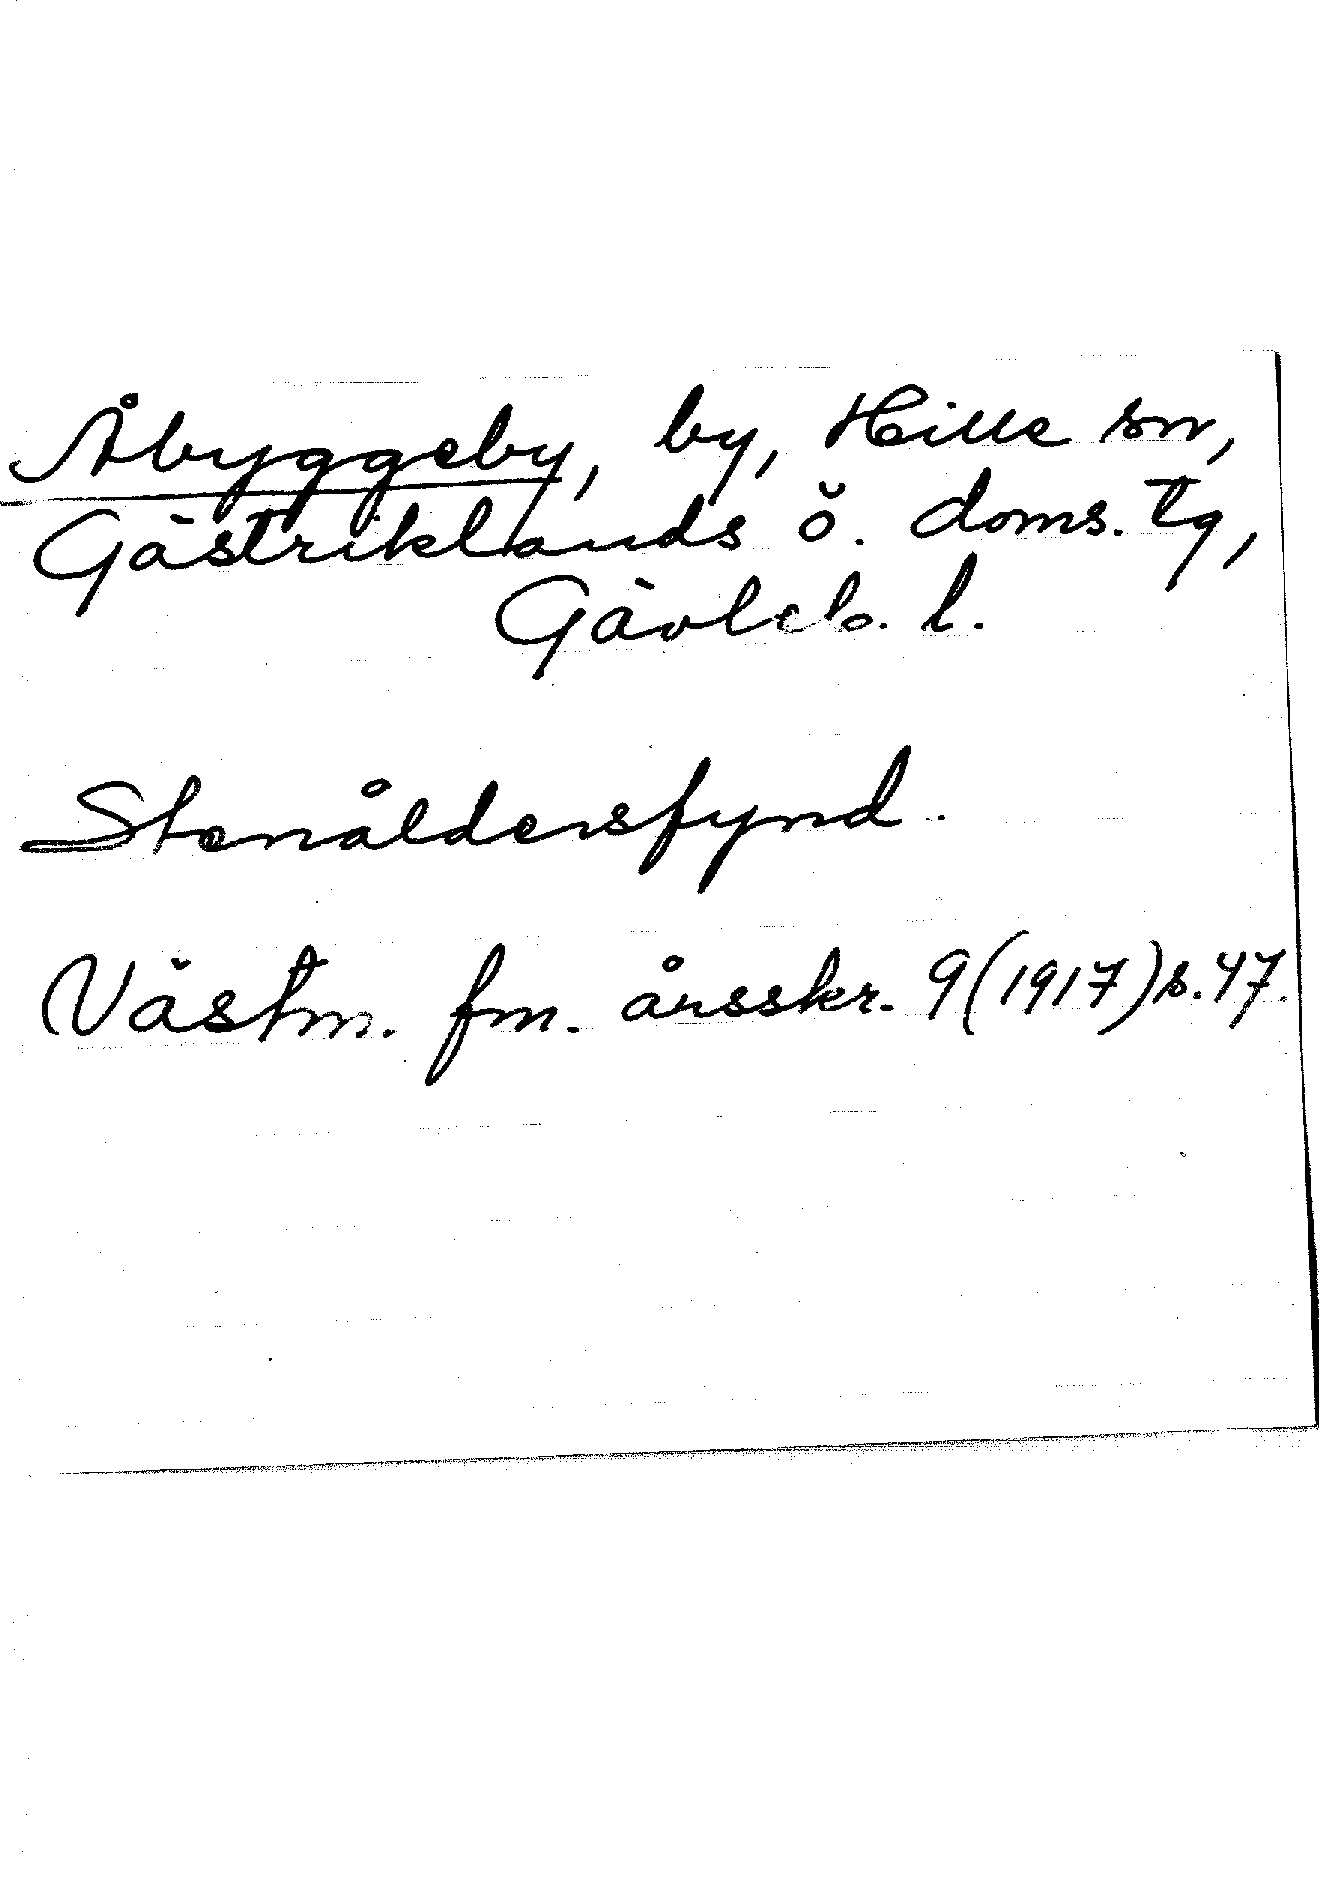 Åbyggeby, by, Hille sn,
Gästriklands ö. doms. tg,
Gävleb. l.
Stenåldersfynd.
Västm. fm. årsskr. 9 (1917) s. 47.